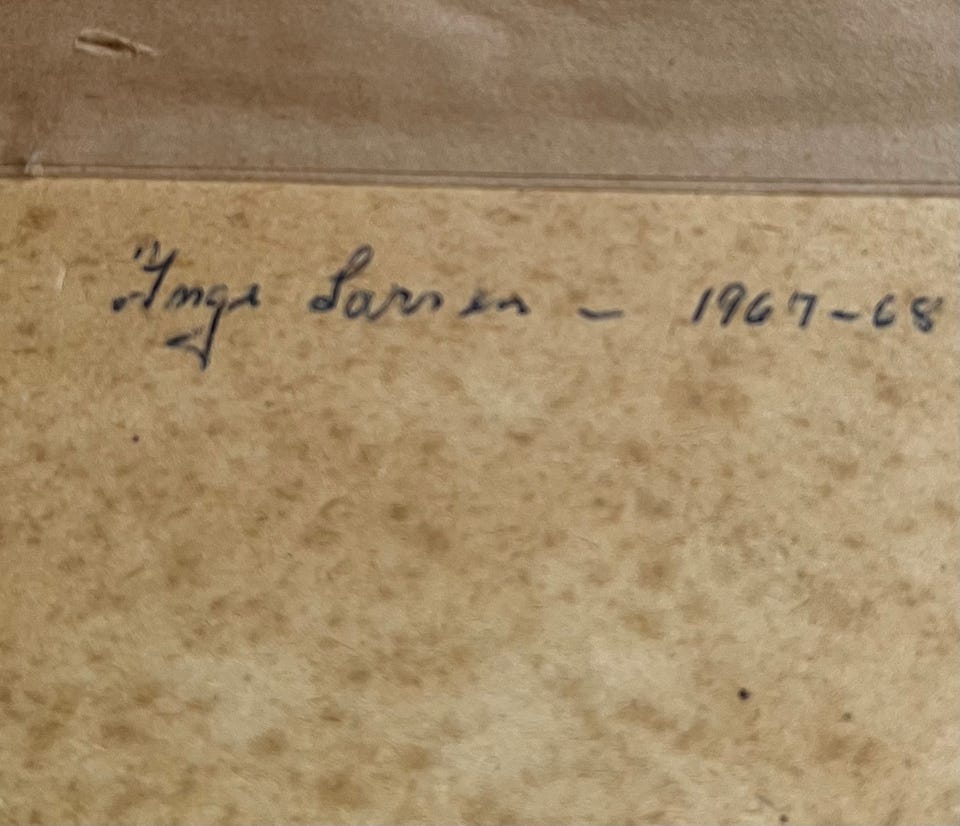 Inge Larsen - 1967-68